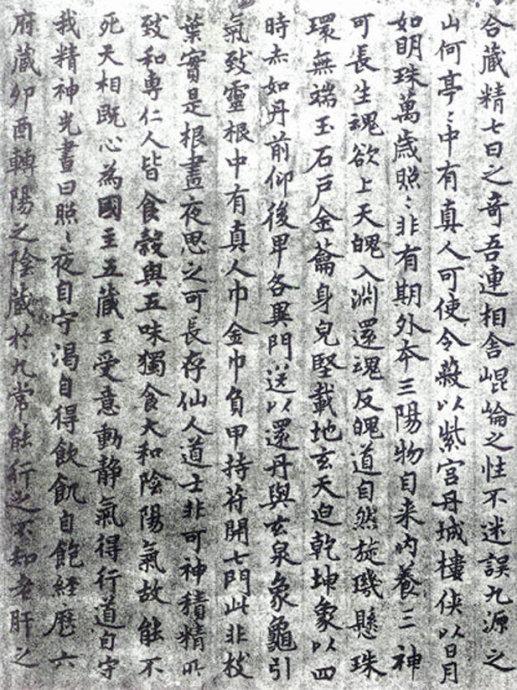 合藏精七日之奇吾連相舍崐崘之性不迷誤九源之
山何亭〻中有真人可使令蔽以紫宮丹城樓俠以日月
如明珠萬歲照〻非有期外本三陽物自来内養三神
可長生魂欲上天魄入淵還魂反魄道自然旋璣懸珠
環無端玉石戶金蘥身皃堅載地玄天迫乾坤象以四
時赤如丹前仰後甲各異門送以還丹與玄泉象龜引
氣致靈根中有真人巾金巾負甲持符開七門此非枝
葉實是根晝夜思之可長存仙人道士非可神積精所
致和專仁人皆食穀與五味獨食大和陰陽氣故能不
死天相既心為國主五藏王受意動静氣得行道自守
我精神光晝日照〻夜自守渴自得飲飢自飽經歷六
府藏卯酉轉陽之陰藏於九常能行之不知老肝之